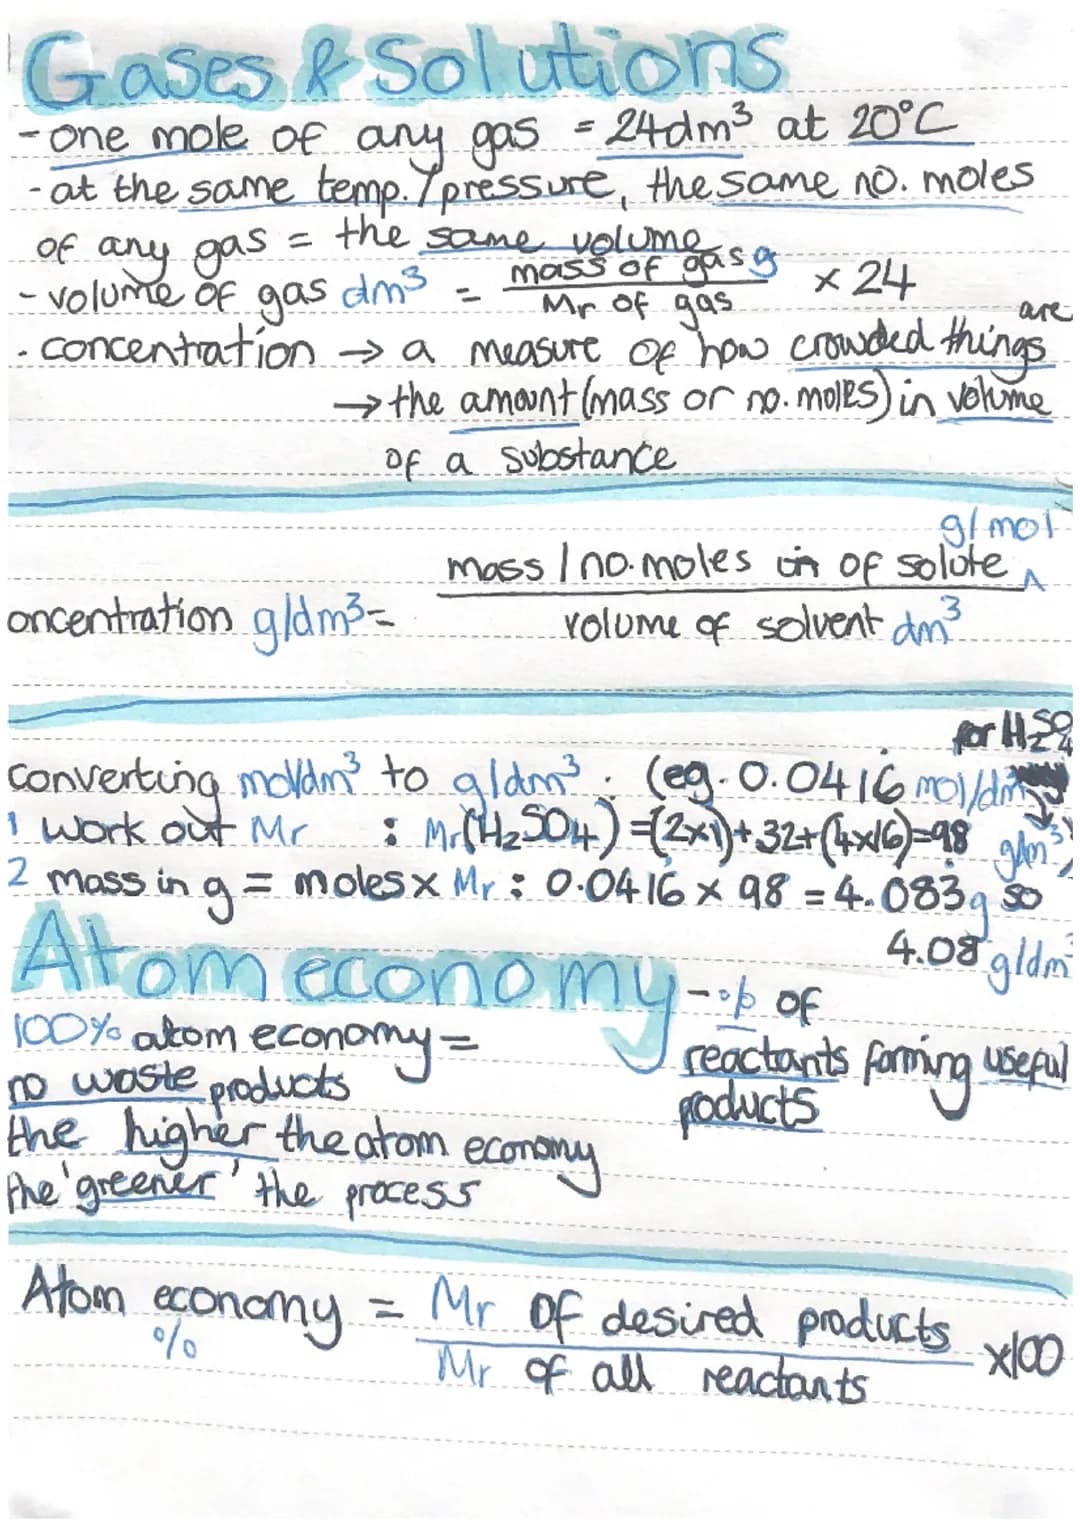 Gases & Solutions
- one mole of any gas = 24dm³ at 20°C
- at the same temp./pressure, the same no. moles
of any gas = the same volume
- volume of gas dm³ = mass of gas g / Mr of gas × 24
· concentration → a measure of how crowded things are
→ the amount (mass or no. moles) in volume
of a substance
g/mol
mass / no. moles of solute
oncentration g/dm³ =
volume of solvent dm³
for H₂SO₄
converting mol/dm³ to g/dm³. (eg. 0.0416 mol/dm³
1 work out Mr : Mr(H₂SO₄) = (2×1)+32+(4×16)=98 g/dm³)
2 mass in g = moles × Mr : 0.0416 × 98 = 4.083g so
4.08 g/dm³
Atom economy - % of
100% atom economy =
reactants forming useful
no waste products
products
the higher the atom economy
the 'greener' the process
Atom economy % = Mr of desired products / Mr of all reactants ×100